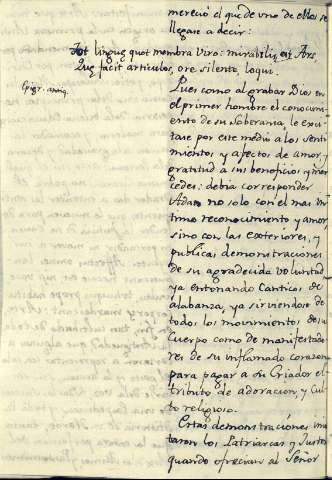 mereció el que de uno de ellos se
llegase a decir:
Tot linguę quot membra viro: mirabilis est Ars
Quę facit articulos, ore silente, loqui.
Epigr. antiq.
Pues como al grabar Dios en
el primer hombre el conocimi-
ento de su Soberania, le exci-
tase por este medio a los senti-
mientos y afectos de amor y
gratitud a sus beneficios, y mer-
cedes: debia corresponder
Adan no solo con el mas in-
timo reconocimiento y amor,
sino con las exteriores, y
publicas demonstraciones
de su agradecida voluntad
ya entonando Canticos de
alabanza, ya sirviendose de
todos los movimientos de su
Cuerpo como de manifestado-
res de su inflamado corazon
para pagar a su Criador el
tributo de adoracion, y Cul-
to religioso.
Estas demonstraciones imi-
taron los Patriarcas y Justos
quando ofrecian al Señor